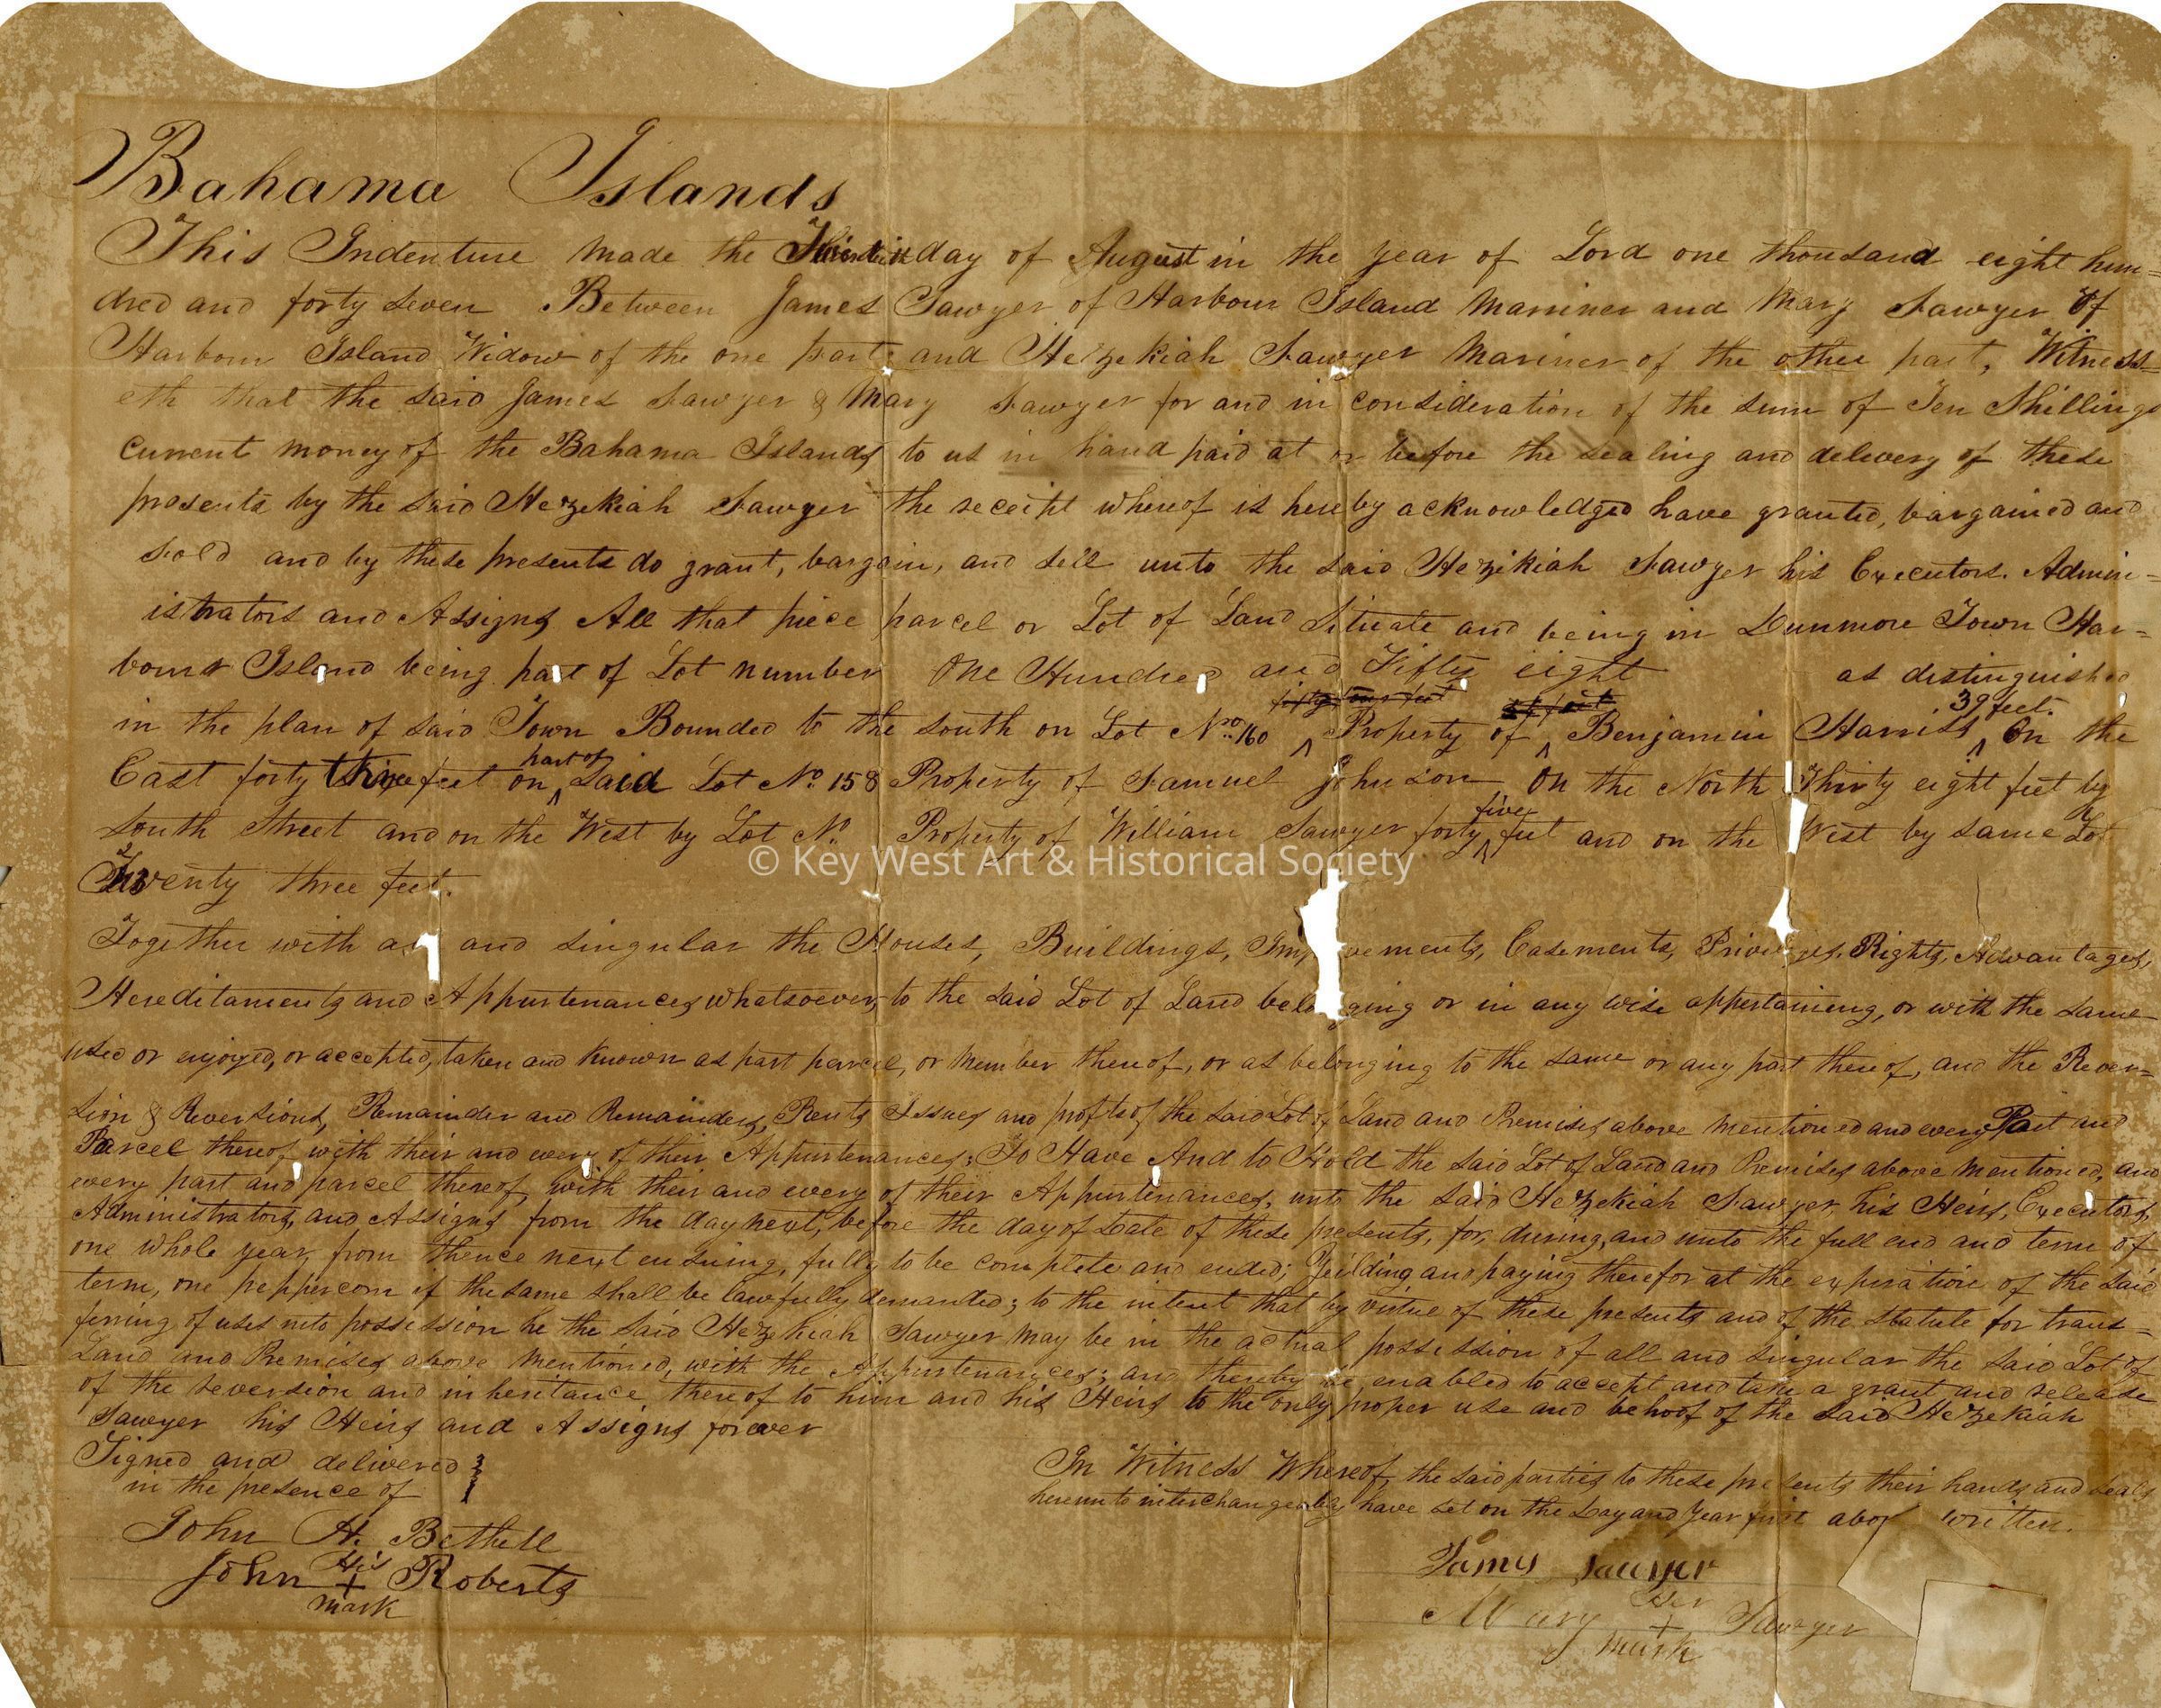 Bahama Islands
This Indenture made the day of August in the year of Lord one thousand eight hun=
dred and forty seven Between James Sawyer of Harbour Island Marriner and Mary Sawyer of
Harbour Island Widow of the one part and Hezekiah Sawyer Mariner of the other part, Witness=
eth that the said James Sawyer & Mary Sawyer for and in consideration of the sum of Ten Shillings
current money of the Bahama Islands to us in hand paid at or before the sealing and delivery of these
presents by the said Hezekiah Sawyer the receipt whereof is hereby acknowledged have granted, bargained and
sold and by these presents do grant, bargain, and sell unto the said Hezikiah Sawyer his Executors. Admin=
istrators and Assigns All that piece parcel or Lot of Land Situate and being in Dunmore Town Har=
bour Island being part of Lot number One Hundred and Fifty eight as distinguished
in the plan of said Town Bounded to the south on Lot No. 160 Property of Benjamin Harriss 39 feet. On the
East forty three feet on part of Said Lot No. 158 Property of Samuel Johnson On the North Thirty eight feet by
South Street and on the West by Lot No. Property of William Sawyer forty five feet and on the West by same Lot
Twenty three feet.
Together with and singular the Houses, Buildings, Easements, Rights, Advantages,
Hereditaments and Appurtenances whatsoever to the said Lot of Land belonging or in any wise appertaining, or with the same
used or enjoyed, or accepted, taken and known as part parcel, or member thereof, or as belonging to the same or any part thereof, and the Rever=
sion & Reversions, Remainder and Remainders, Rents Issues and profits of the said Lot of Land and Premises above mentioned and every Part and
Parcel thereof with their and every of their Appurtenances; To Have And to Hold the said Lot of Land and Premises above mentioned, and
every part and parcel thereof, with their and every of their Appurtenances, unto the said Hezekiah Sawyer, his Heirs, Executors,
Administrators, and Assigns from the day next, before the day of Date of these presents, for, during, and unto the full end and term of
one whole year, from thence next ensuing, fully to be complete and ended; Yeilding and paying therefor at the expiration of the said
term, one peppercorn if the same shall be lawfully demanded; to the intent that by virtue of these presents and of the statute for trans=
ferring of uses into possession he the said Hezekiah Sawyer may be in the actual possession of all and singular the said Lot of
Land and Premises above mentioned, with the Appurtenances; and thereby be enabled to accept and take a grant and release
of the reversion and inheritance thereof to him and his Heirs to the only proper use and behoof of the said Hezekiah
Sawyer his Heirs and Assigns forever
Signed and delivered
in the presence of
In Witness Whereof, the said parties to these presents their hands and seals
hereunto interchangeably have set on the Day and Year first above written.
John H. Bethell
John His + mark Roberts
James Sawyer
Mary Her + mark Sawyer
© Key West Art & Historical Society